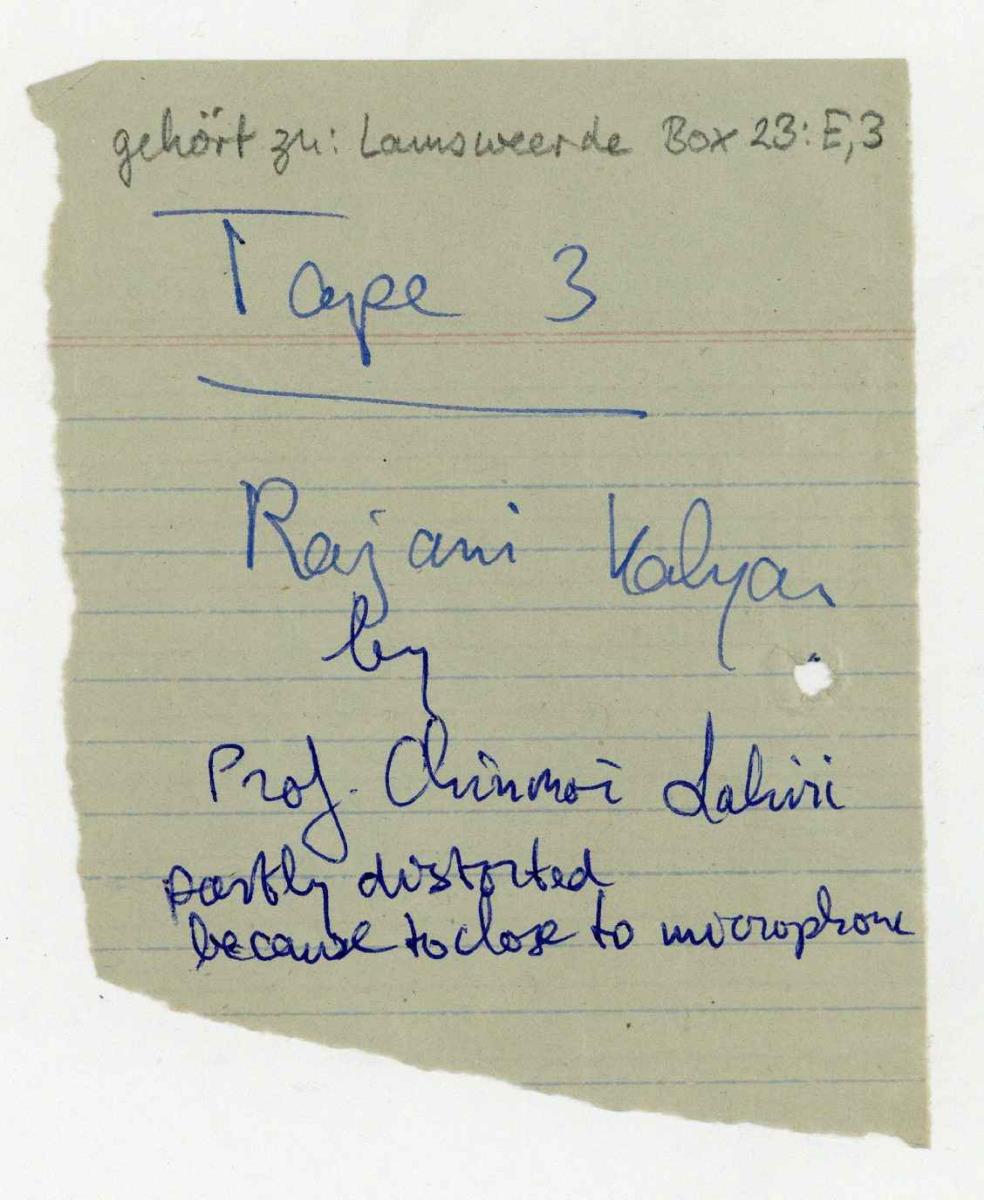 gehört zu: Lamsweerde Box 23: E,3
Tape 3
Rajani Kalyan
by
Prof. Chinmoi Lahiri
partly distorted
because to close to microphone